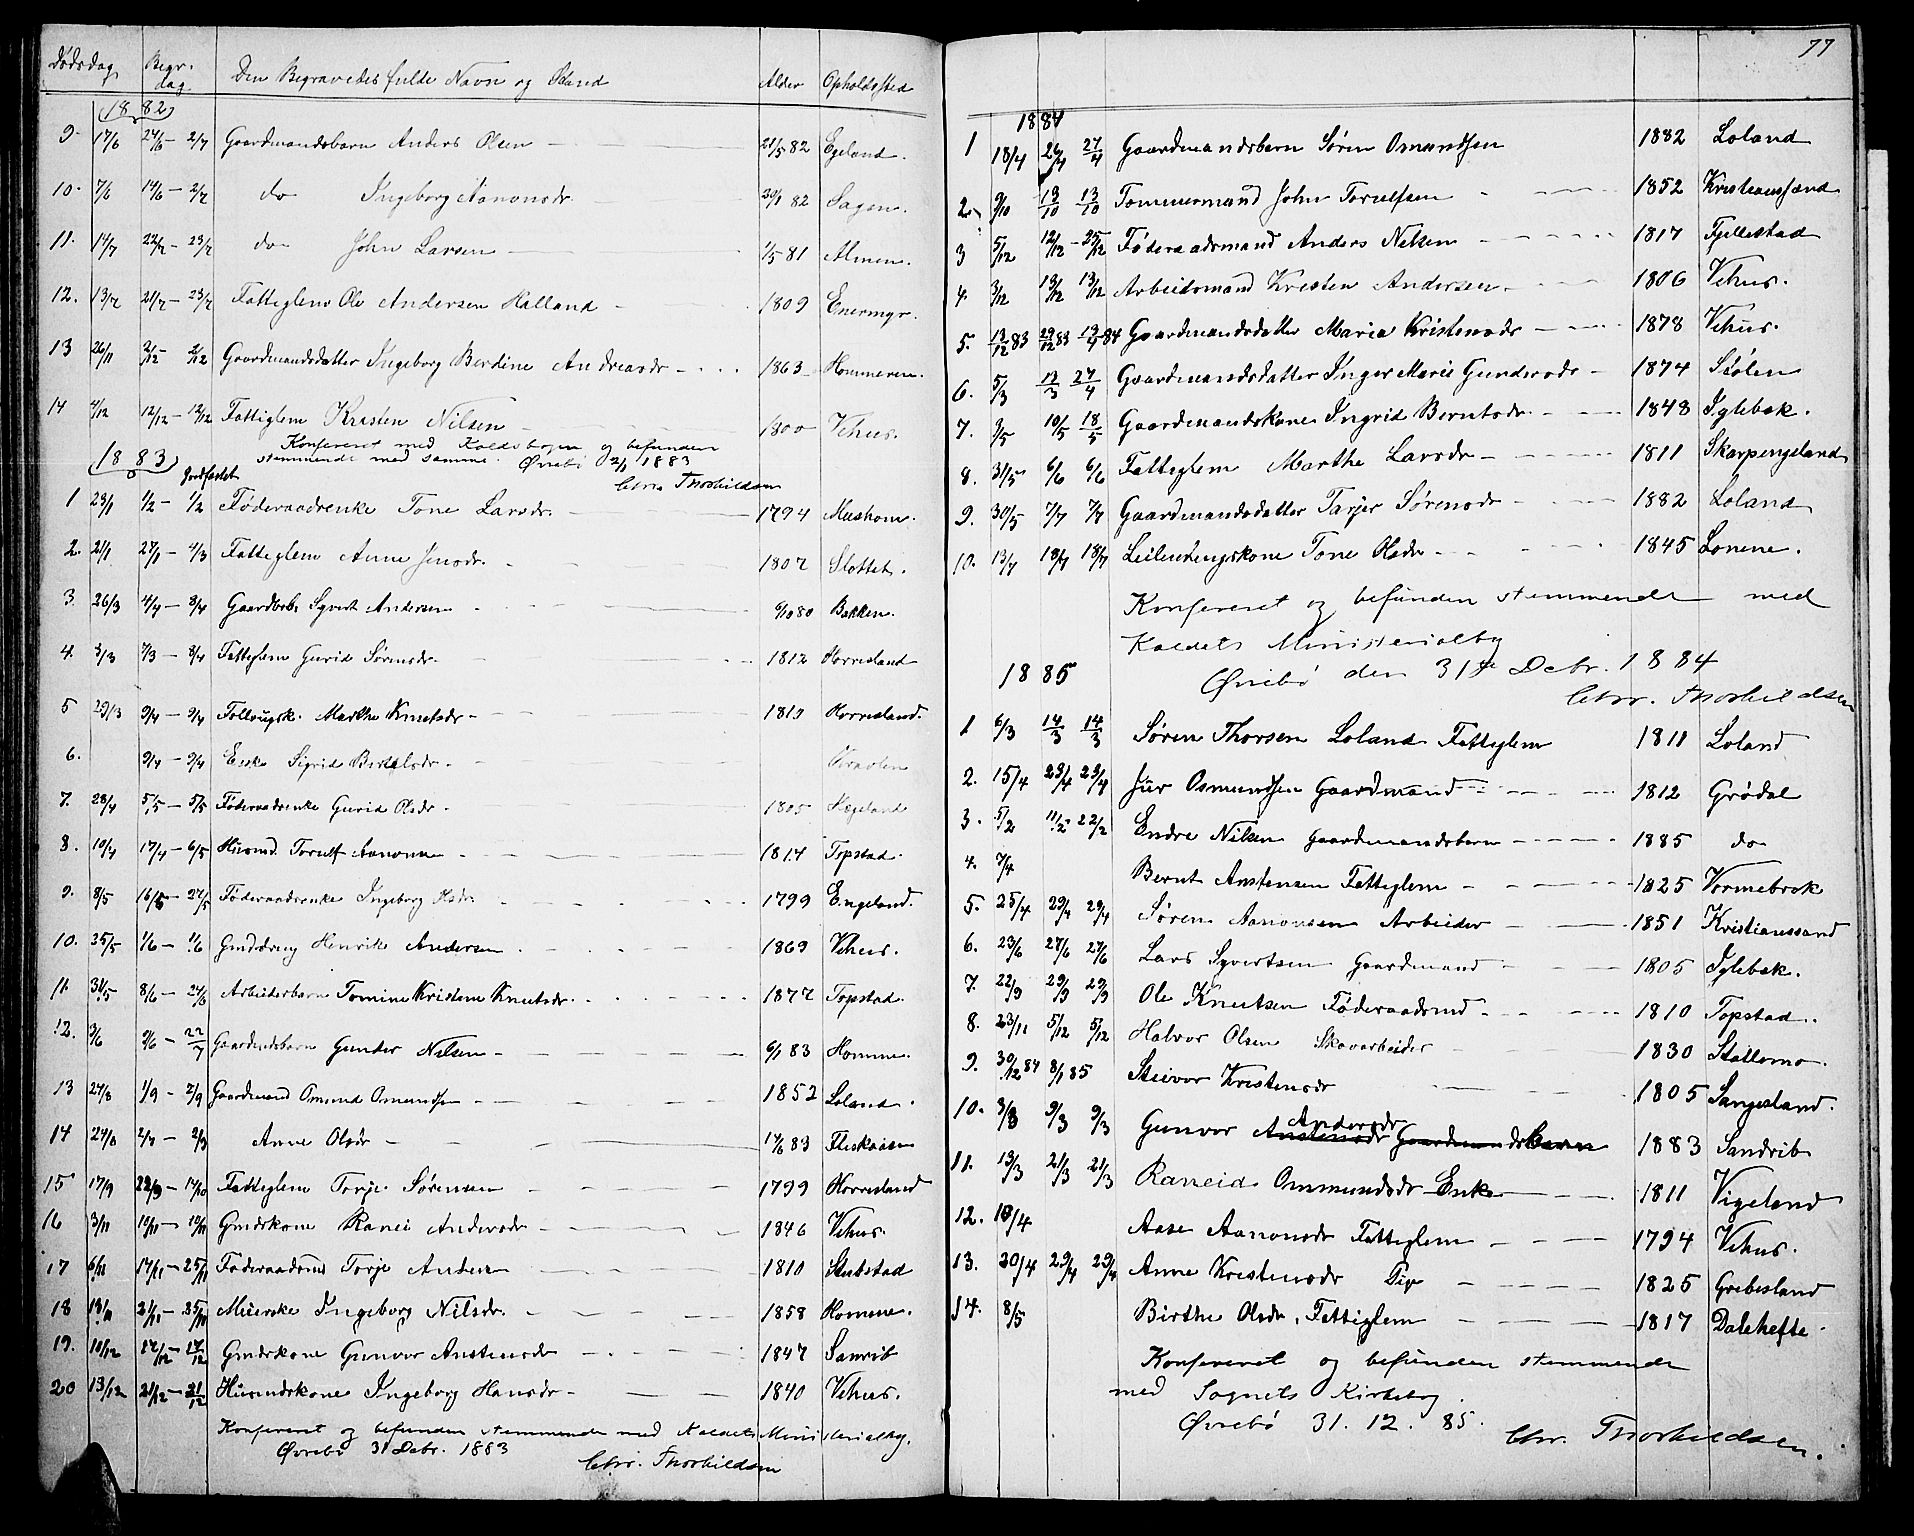 Dødsdag Begr. dag. Den Begravedes fulde Navn og Stand Alder Opholdssted
1882
9 17/6 24/6 - 2/7 Gaardmandsbarn Anders Olsen 21/5 82 Egeland.
10. 7/6 14/6 - 2/7 do Ingeborg Aanonsdr 30/1 82 Sagen.
11. 14/7 22/7 - 23/7 do John Larsen 1/5 81 Almen.
12. 13/7 21/7 - 23/7 Fattiglem Ole Andersen Halland 1809 Enermyr.
13 26/11 2/12 - 2/12 Gaardmandsdatter Ingeborg Berdine Andreasdr 1863 Hommeren.
14 4/12 12/12 - 12/12 Fattiglem Kristen Nilsen 1800 Vehus.
Konfereret med Kaldsbogen og befunden
stemmende med samme. Øvrebø 2/1 1883
Chr. Thorkildsen
1883
Jordfæstet
1 23/1 1/2 - 1/2 Føderaadsenke Tone Larsdr. 1794 Mushom.
2. 21/1 27/1 - 4/3 Fattiglem Anne Jensdr. 1807 Slottet.
3. 26/3 4/4 - 8/4 Gaardbrbr Syvert Andersen 6/10 80 Bakken.
4. 3/3 7/3 - 8/4 Fattiglem Gurid Sørensdr. 1812 Horrisland
5 29/3 9/4 - 9/4 Marthe Knutsdr 1819 Horrisland.
6. 9/4 - 9/4 Enke Sigrid Bertelsdr.
7. 28/4 5/5 - 5/5 Føderaadsenke Gurid Olsdr. 1805 Hægeland
8. 10/4 17/4 - 6/5 Husmd. Torulf Aanonsen 1814 Topstad.
9. 8/5 16/5 - 27/5 Føderaadsenke Ingeborg Olsdr. 1799 Engeland.
10. 25/5 1/6 - 1/6 Gmdsdreng Henrik Andersen 1869 Vehus.
11. 31/5 8/6 - 24/6 Arbeiderbarn Tomine Kristine Knutsdr. 1877 Topstad.
12. 3/6 9/6 - 22/7 Gaardmdsbarn Gunder Nilsen 6/1 83 Homme.
13 27/8 1/9 - 2/9 Gaardmand Omund Omundsen 1852 Loland.
14 24/8 2/9 - 2/9 Anne Olsdr 14/6 83 Fleskaasen
15 17/9 22/9 - 14/10 Fattiglem Torje Sørensen 1799 Horrisland
16 3/11 10/11 - 10/11 Gmdskone Ranei Andersdr 1846 Vehus.
17 6/11 17/11 - 25/11 Føderaadsmd Torje 1810 Stubstad
18 13/11 21/11 - 25/11 Ingeborg Nilsdr. 1858 Homme.
19. 10/12 17/12 - 17/12 Gmdskone Gunvor Anstensdr 1847 Sanrib
20 13/12 21/12 - 21/12 Husmdskone Ingeborg Hansdr 1840 Vehus.
Konfereret og befunden stemmende med Kaldets Ministerialbog.
Øvrebø 31 Decbr. 1883
Chr. Thorkildsen
77
1884
1 18/4 26/4 27/4 Gaardmandsbarn Søren Omundsen 1882 Loland
2. 9/10 13/10 13/10 Tømmermand John Torulfsen 1852 Kristianssand
3 5/12 12/12 - 25/12 Føderaadsmand Anders Nilsen 1817 Fjellestad
4. 3/12 13/12 13/12 Arbeidsmand Kristen Andersen 1806 Vehus.
5. 13/12 83 29/12 83 13/4 84 Gaardmandsdatter Maria Kristensdr 1878 Vehus.
6. 5/3 13/3 27/4 Gaardmandsdatter Inger Marie Gundersdr 1874 Stølen
7. 2/5 10/5 18/5 Gaardmandskone Ingrid Berntsdr. 1848 Iglebæk.
8. 31/5 6/6 6/6 Fattiglem Marthe Larsdr 1811 Skarpengeland
9. 30/5 7/7 7/7 Gaardmandsdatter Tarjer Sørensdr 1882 Loland
10. 13/7 18/7 18/7 Leilendingskone Tone Olsdr 1845 Lonene.
Konfereret og befunden stemmende med
Kaldets Ministerialbog
Øvrebø den 31te Decbr. 1884
Chr. Thorkildsen
1885
1 6/3 14/3 14/3 Søren Thorsen Loland Fattiglem 1811 Loland
2. 15/4 23/4 23/4 Osmundsen Gaardmand 1812 Grødal
3. 5/2 11/2 22/2 Endre Nilsen Gaardmandsbarn 1885 do
4. 7/4 Bernt Anstensen Fattiglem 1825 Vormebrok
5. 25/4 29/4 29/4 Søren Aanonsen Arbeider 1851 Kristianssand
6. 23/6 27/6 27/6 Lars Syvertsen Gaardmand 1805 Iglebæk.
7. 22/9 29/9 29/9 Ole Knutsen Føderaadsmd 1810 Topstad.
8. 23/11 5/12 5/12 Halvor Olsen Skovarbeider 1830 Stallemo.
9. 30/12 84 8/1 85 Steivor Kristensdr 1805 Sangesland.
10. 3/3 9/3 9/3 Gunvor Anstensdr Andersdr Gaardmandsbarn 1883 Sandrib
11. 13/3 21/3 21/3 Raneid Ommundsdr Enke 1811 Vigeland
12. 18/4 Aase Aanonsdr Fattiglem 1794 Vehus.
13. 20/4 29/4 29/4 Anne Kristensdr Pige 1825 Grebesland
14. 8/5 Birthe Olsdr. Fattiglem 1817 Dalehefte
Konfereret og befunden stemmende
med Sognets Kirkebog.
Øvrebø 31.12.85.
Chr. Thorkildsen.